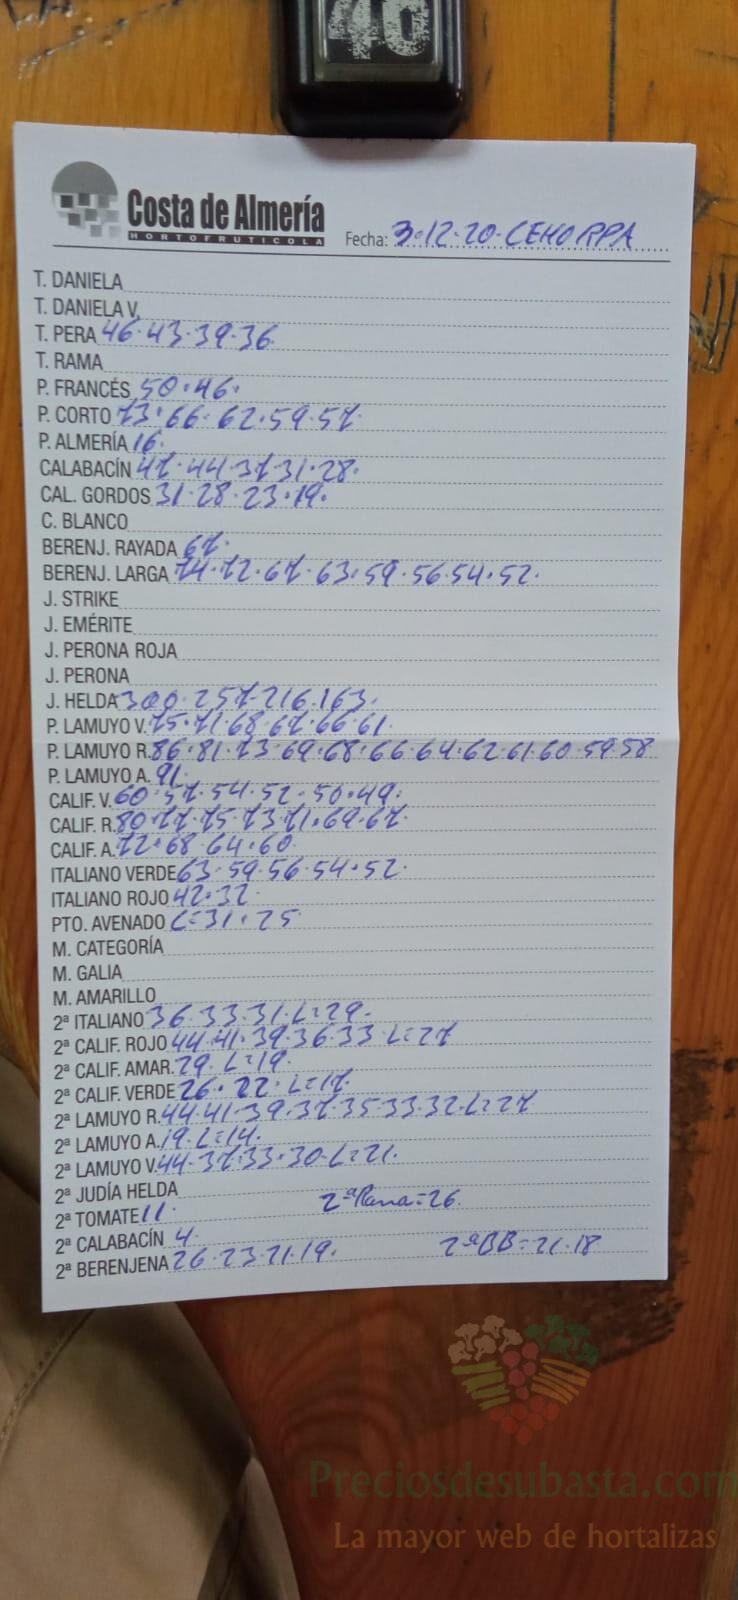 40
Costa de Almería
HORTOFRUTICOLA
Fecha: 3·12·20·CEHORPA
T. DANIELA
T. DANIELA V.
T. PERA 46·43·39·36
T. RAMA
P. FRANCÉS 50·46·
P. CORTO 73·66·62·59·57
P. ALMERÍA 16·
CALABACÍN 47·44·37·31·28·
CAL. GORDOS 31·28·23·19·
C. BLANCO
BERENJ. RAYADA 67·
BERENJ. LARGA 74·72·67·63·59·56·54·52·
J. STRIKE
J. EMÉRITE
J. PERONA ROJA
J. PERONA
J. HELDA 300·257·216·163·
P. LAMUYO V. 75·71·68·67·66·61·
P. LAMUYO R. 86·81·73·69·68·66·64·62·61·60·59·58
P. LAMUYO A. 91·
CALIF. V. 60·57·54·52·50·49·
CALIF. R. 80·77·75·73·71·69·67·
CALIF. A. 72·68·64·60·
ITALIANO VERDE 63·59·56·54·52·
ITALIANO ROJO 42·32·
PTO. AVENADO L=31·25
M. CATEGORÍA
M. GALIA
M. AMARILLO
2ª ITALIANO 36·33·31·L=29·
2ª CALIF. ROJO 44·41·39·36·33·L=27
2ª CALIF. AMAR. 29·L=19·
2ª CALIF. VERDE 26·22·L=17·
2ª LAMUYO R. 44·41·39·37·35·33·32·L=27
2ª LAMUYO A. 19·L=14·
2ª LAMUYO V. 44·37·33·30·L=21·
2ª JUDÍA HELDA
2ª TOMATE 11· 2ªRama=26·
2ª CALABACÍN 4·
2ª BERENJENA 26·23·21·19· 2ªBB=21·18
Preciosdesubasta.com
La mayor web de hortalizas